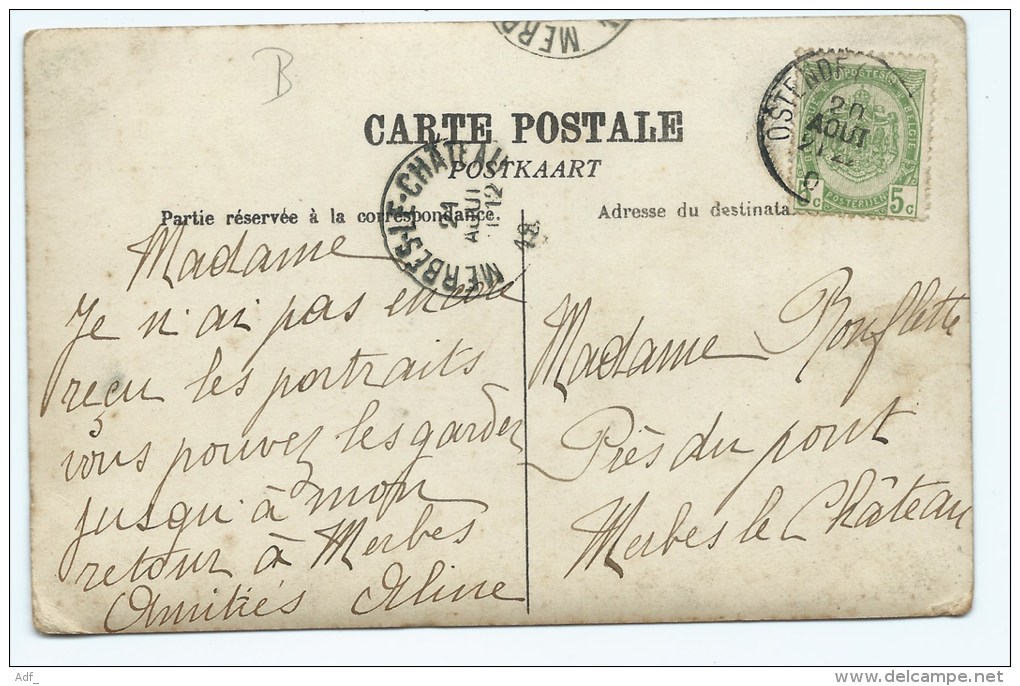 MERB
B
CARTE POSTALE
POSTKAART
OSTENDE
20
AOUT
21-22
POSTES
BELGIQUE
5c 5c
POSTERIJEN
MERBES-LE-CHÂTEAU
21
AOUT
12
Partie réservée à la correspondance.
Adresse du destinata
Madame
Je n'ai pas encore
reçu les portraits
vous pouvez les garder
jusqu'à mon
retour à Merbes
Amitiés Aline
Madame Rouflette
Près du pont
Merbes le Château
Adf_
http://www.delcampe.net